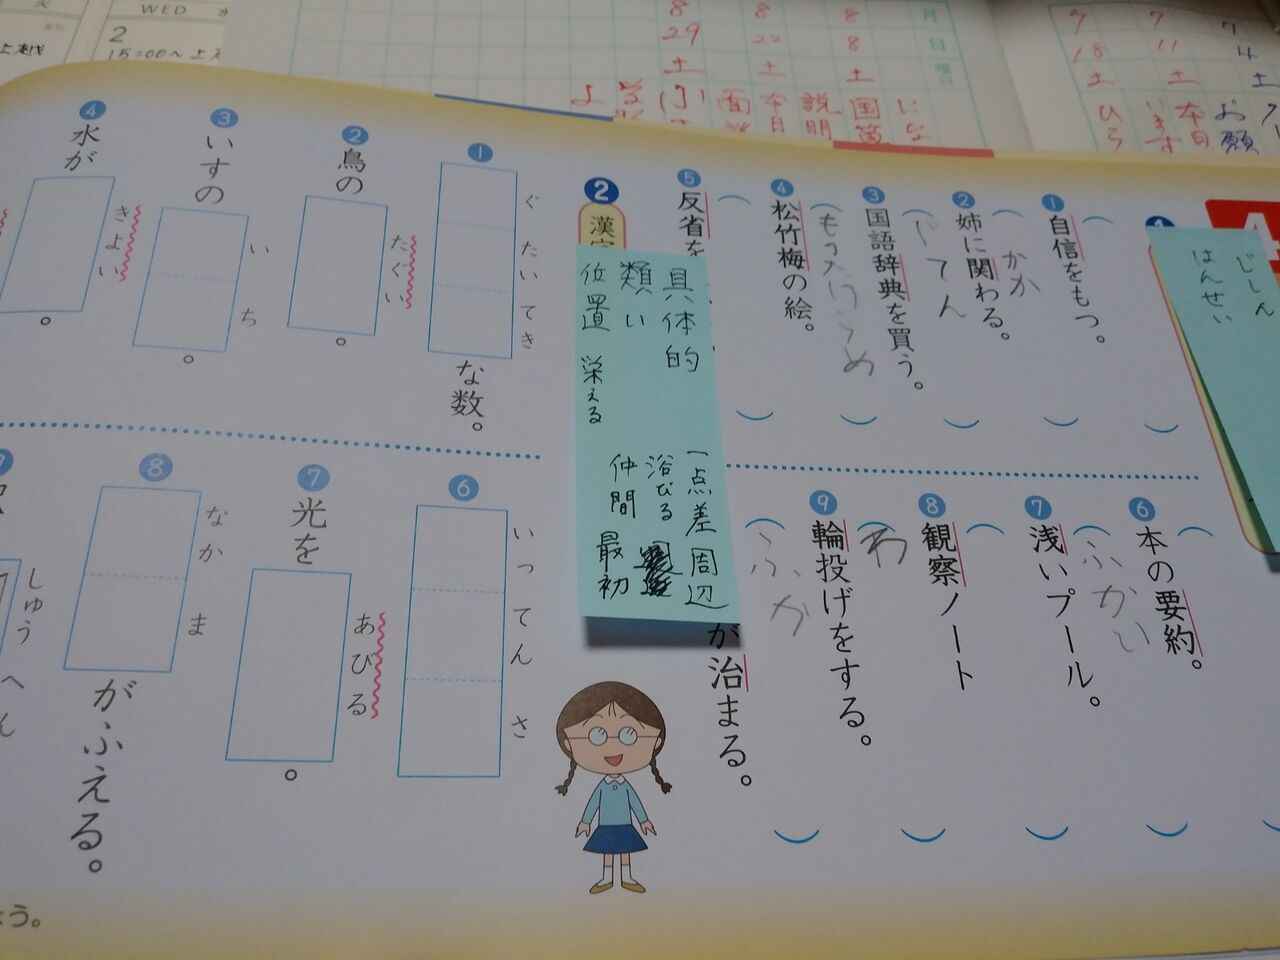 WED
2
15:00〜上
8
29
土
8
22
土
8
8
土
月
日
曜日
7
18
土
7
11
土
7
4
土
面談
本日
説明
国
ひろ
います
本日
お願
A
じしん
はんせい
1
①自信をもつ。
②姉に関わる。
かか
③国語辞典を買う。
じてん
④松竹梅の絵。
⑤反省を
⑥本の要約。
⑦浅いプール。
ふかい
⑧観察ノート
⑨輪投げをする。
わ
が治まる。
ふか
2
漢字
具体的
類い
位置 栄える
一点差 周辺
浴びる
仲間 最初
①ぐたいてき
な数。
②鳥の
たぐい
。
③いすの
いち
。
④水が
きよい
。
⑥いってんさ
⑦光を
あびる
。
⑧なかま
がふえる。
しゅうへん
う。